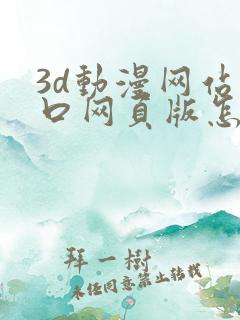 3d動漫网站
口网页版怎
拜一樹
未经同意禁止转载